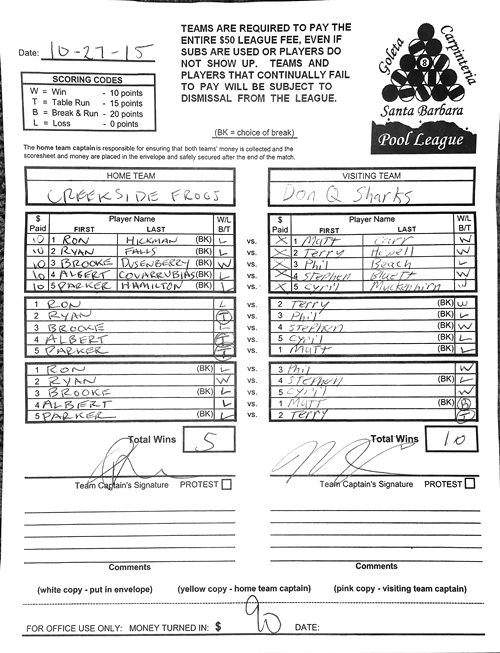 Date: 10-27-15
TEAMS ARE REQUIRED TO PAY THE
ENTIRE $50 LEAGUE FEE, EVEN IF
SUBS ARE USED OR PLAYERS DO
NOT SHOW UP. TEAMS AND
PLAYERS THAT CONTINUALLY FAIL
TO PAY WILL BE SUBJECT TO
DISMISSAL FROM THE LEAGUE.
Goleta Carpinteria
8
Santa Barbara
Pool League
SCORING CODES
W = Win - 10 points
T = Table Run - 15 points
B = Break & Run - 20 points
L = Loss - 0 points
(BK = choice of break)
The home team captain is responsible for ensuring that both teams' money is collected and the
scoresheet and money are placed in the envelope and safely secured after the end of the match.
HOME TEAM VISITING TEAM
CREEKSIDE FROGS Don Q Sharks
$ Paid Player Name FIRST LAST W/L B/T $ Paid Player Name FIRST LAST W/L B/T
10 1 RON HICKMAN (BK) L vs. X 1 Matt Carr W
10 2 RYAN FALLS (BK) L vs. X 2 Terry Howell W
10 3 BROOKE DUSENBERRY (BK) W vs. X 3 Phil Beach L
10 4 ALBERT COVARRUBIAS (BK) L vs. X 4 Stephen W
10 5 PARKER HAMILTON (BK) L vs. X 5 Cyril W
1 RON L vs. 2 Terry (BK) W
2 RYAN T vs. 3 Phil (BK) L
3 BROOKE L vs. 4 Stephen (BK) W
4 ALBERT T vs. 5 Cyril (BK) L
5 PARKER T vs. 1 Matt (BK) L
1 RON (BK) L vs. 3 Phil W
2 RYAN W vs. 4 Stephen (BK) L
3 BROOKE (BK) L vs. 5 Cyril W
4 ALBERT L vs. 1 Matt (BK) B
5 PARKER (BK) L vs. 2 Terry T
Total Wins 5 Total Wins 10
Team Captain's Signature PROTEST Team Captain's Signature PROTEST
Comments Comments
(white copy - put in envelope) (yellow copy - home team captain) (pink copy - visiting team captain)
FOR OFFICE USE ONLY: MONEY TURNED IN: $ 90 DATE: